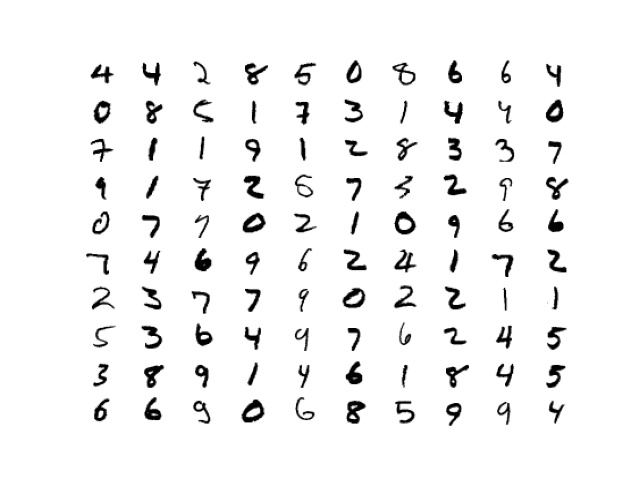 4 4 2 8 5 0 8 6 6 4
0 8 5 1 7 3 1 4 4 0
7 1 1 9 1 2 8 3 3 7
9 1 7 2 6 7 3 2 9 8
0 7 7 0 2 1 0 9 6 6
7 4 6 9 6 2 4 1 7 2
2 3 7 7 9 0 2 2 1 1
5 3 6 4 9 7 6 2 4 5
3 8 9 1 4 6 1 8 4 5
6 6 9 0 6 8 5 9 9 4